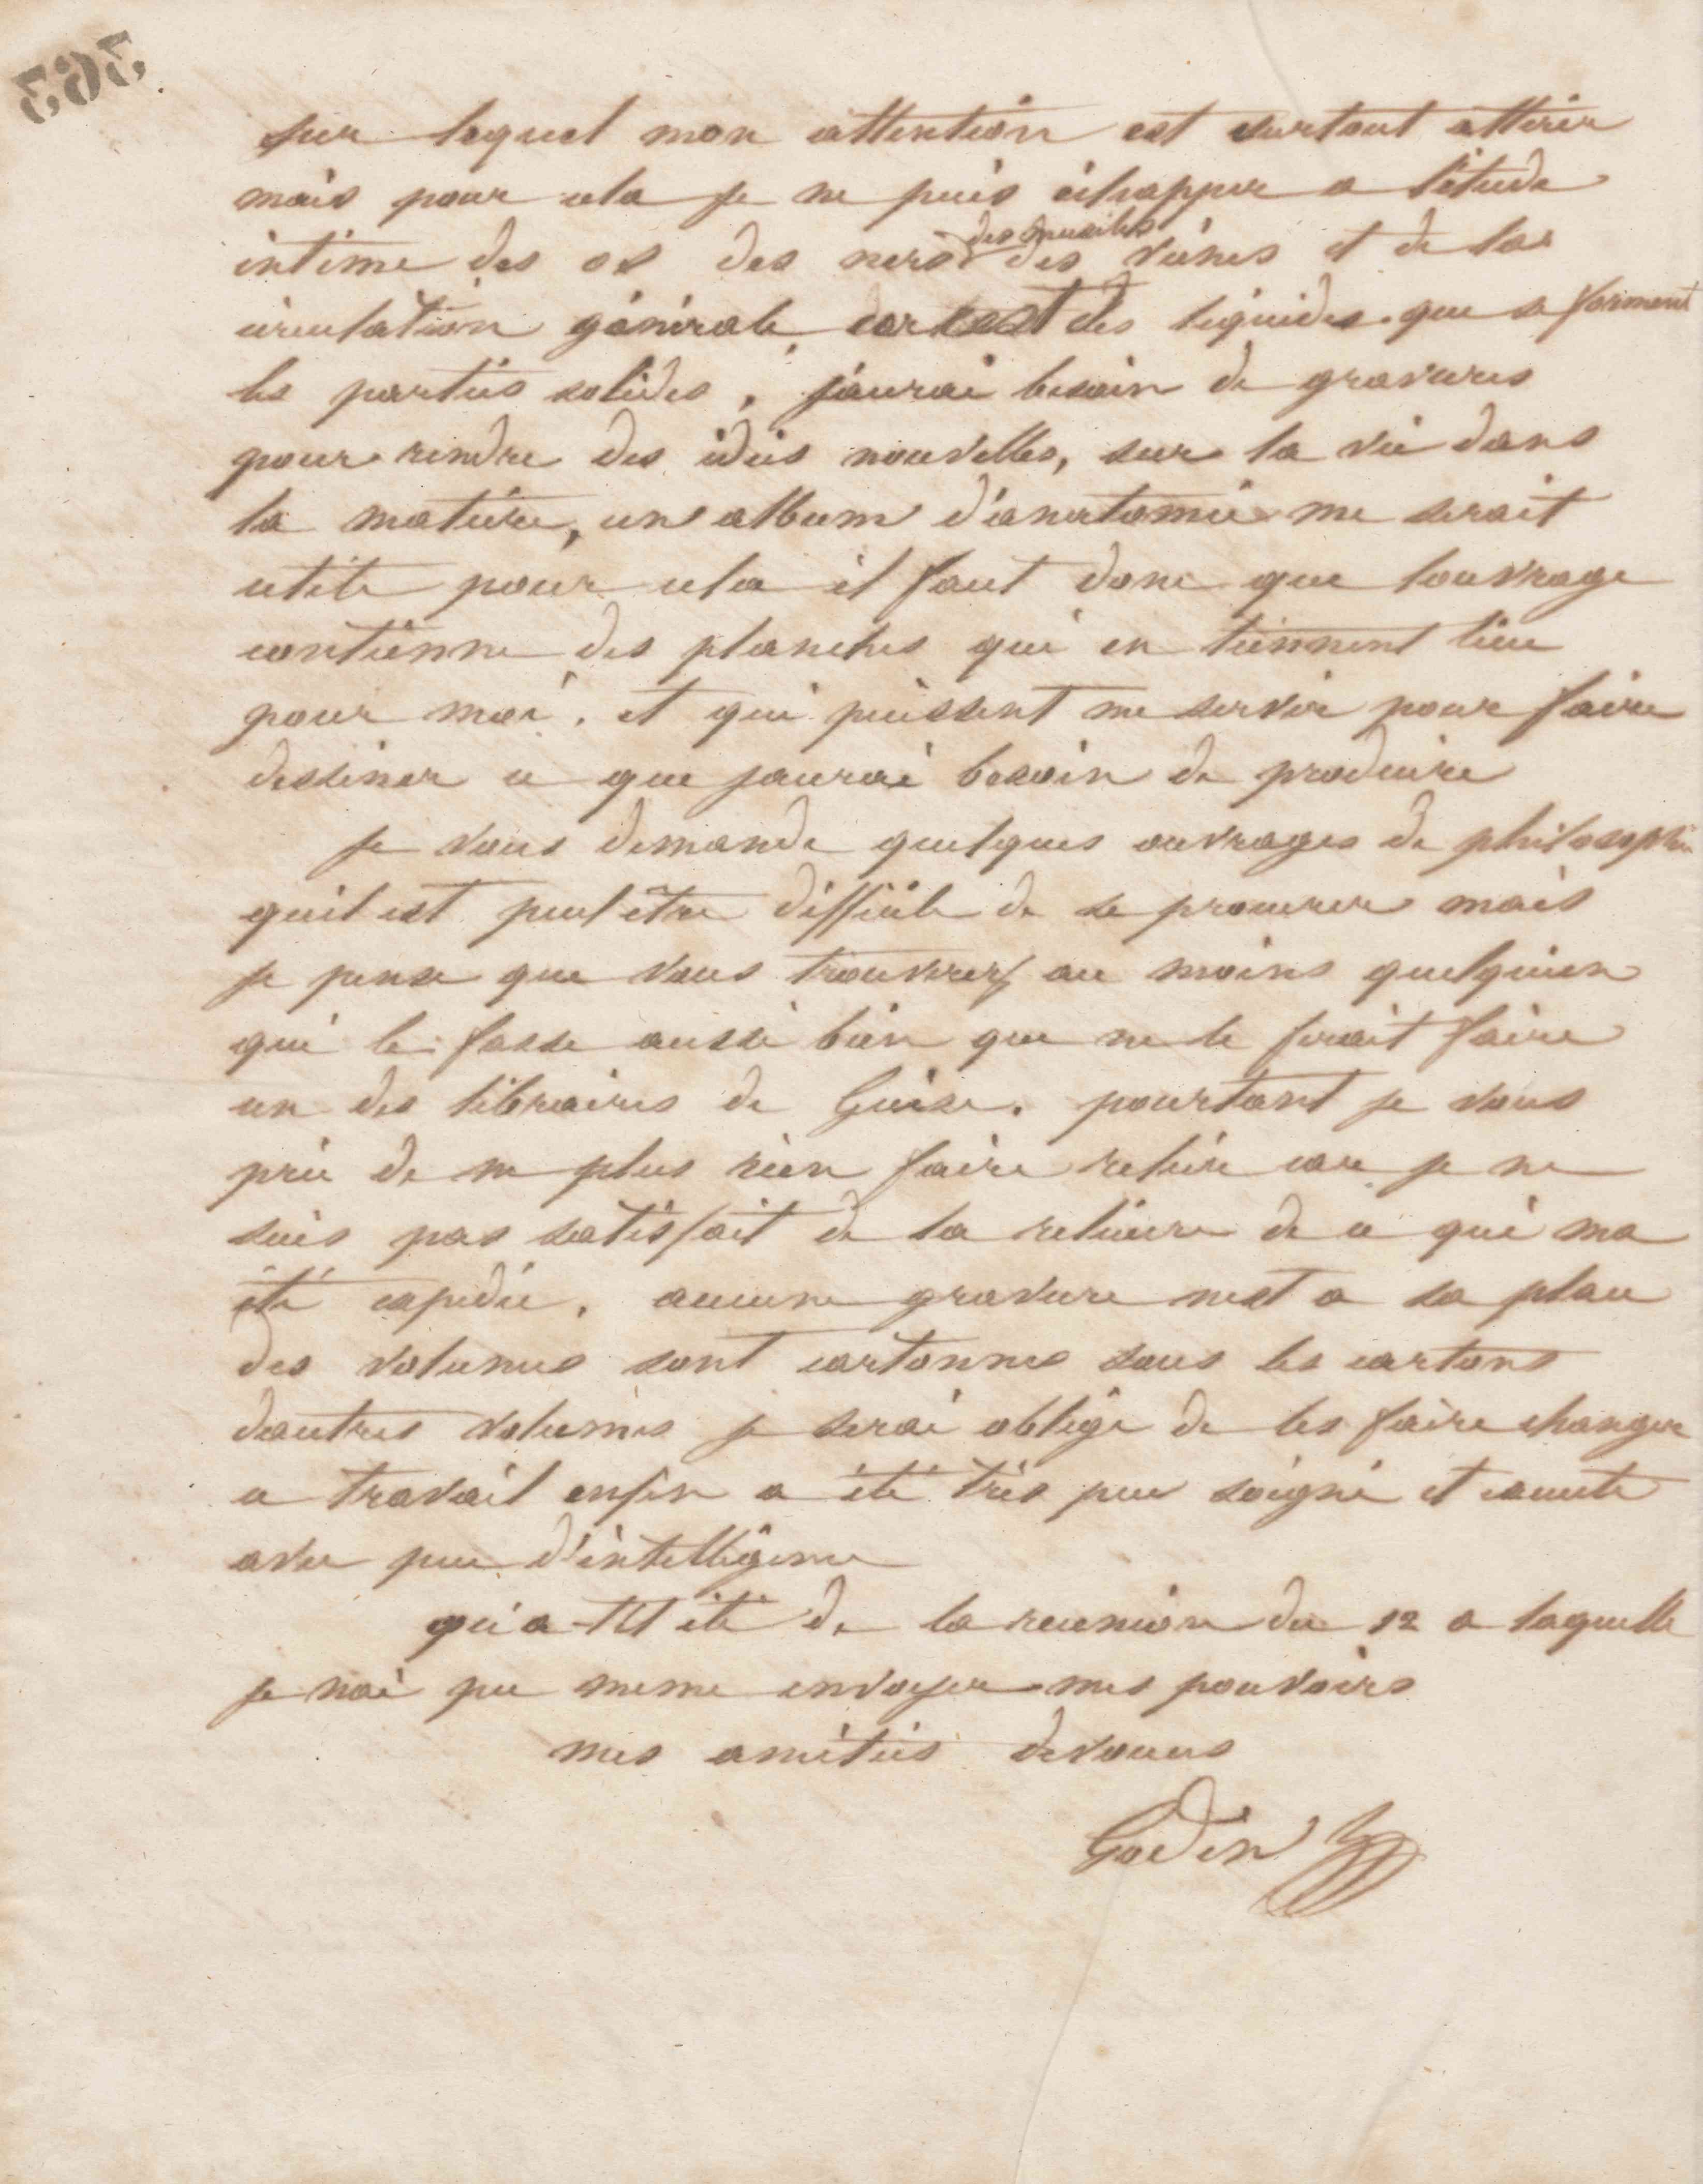 363
sur lequel mon attention est surtout attirée
mais pour cela je ne puis échapper a l'étude
des muscles
intime des os des nerfs des veines et de la
circulation générale car c'est des liquides que se forment
les parties solides, j'aurai besoin de gravures
pour rendre des idées nouvelles, sur la vie dans
la matière, un album d'anatomie me serait
utile pour cela il faut donc que louvrage
contienne des planches qui en tiennent lieu
pour moi. et qui puissent me servir pour faire
dessiner ce que jaurai besoin de produire
je vous demande quelques ouvrages de philosophie
quil est peut être difficile de se procurer mais
je pense que vous trouverez au moins quelquun
qui le fasse aussi bien que ne le ferait faire
un des libraires de Guise. pourtant je vous
prie de ne plus rien faire relier car je ne
suis pas satisfait de la reliure de ce qui ma
été expedié. aucune gravure nest a sa place
des volumes sont cartonnés sous les cartons
dautres volumes je serai obligé de les faire changer
ce travail enfin a été très peu soigné et
avec peu d'intelligence
qu'a-t-il été de la reunion du 12 a laquelle
je nai pu meme envoyer mes pouvoirs
mes amitiés devouées
Godin